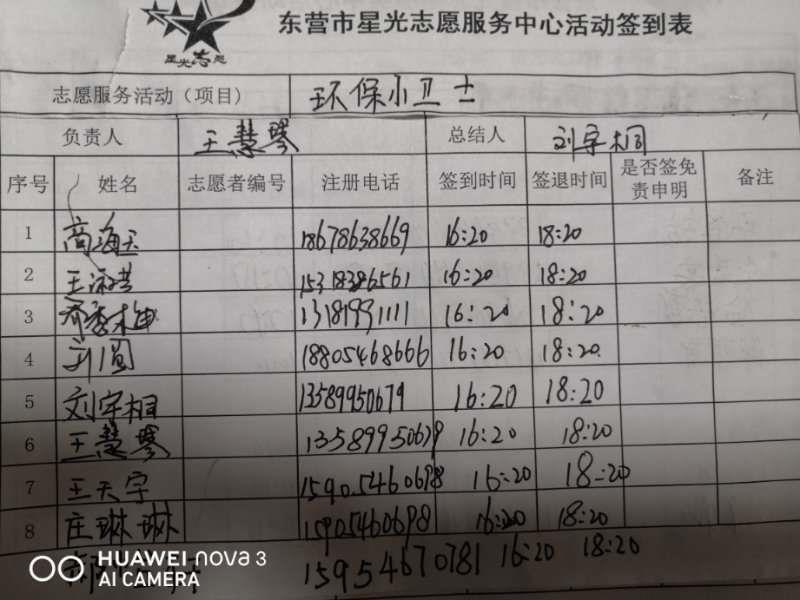 星光志愿
东营市星光志愿服务中心活动签到表
志愿服务活动（项目） 环保小卫士
负责人 王慧琴 总结人 刘宇桐
序号 姓名 志愿者编号 注册电话 签到时间 签退时间 是否签免责申明 备注
1 商海玉 18678638669 16:20 18:20
2 王 16:20 18:20
3 乔 13181991111 16:20 18:20
4 刘圆 18805468666 16:20 18:20
5 刘宇桐 13589950679 16:20 18:20
6 王慧琴 13589950679 16:20 18:20
7 王天宇 15905460698 16:20 18:20
8 庄琳琳 15905460698 16:20 18:20
15954670781 16:20 18:20
HUAWEI nova 3
AI CAMERA